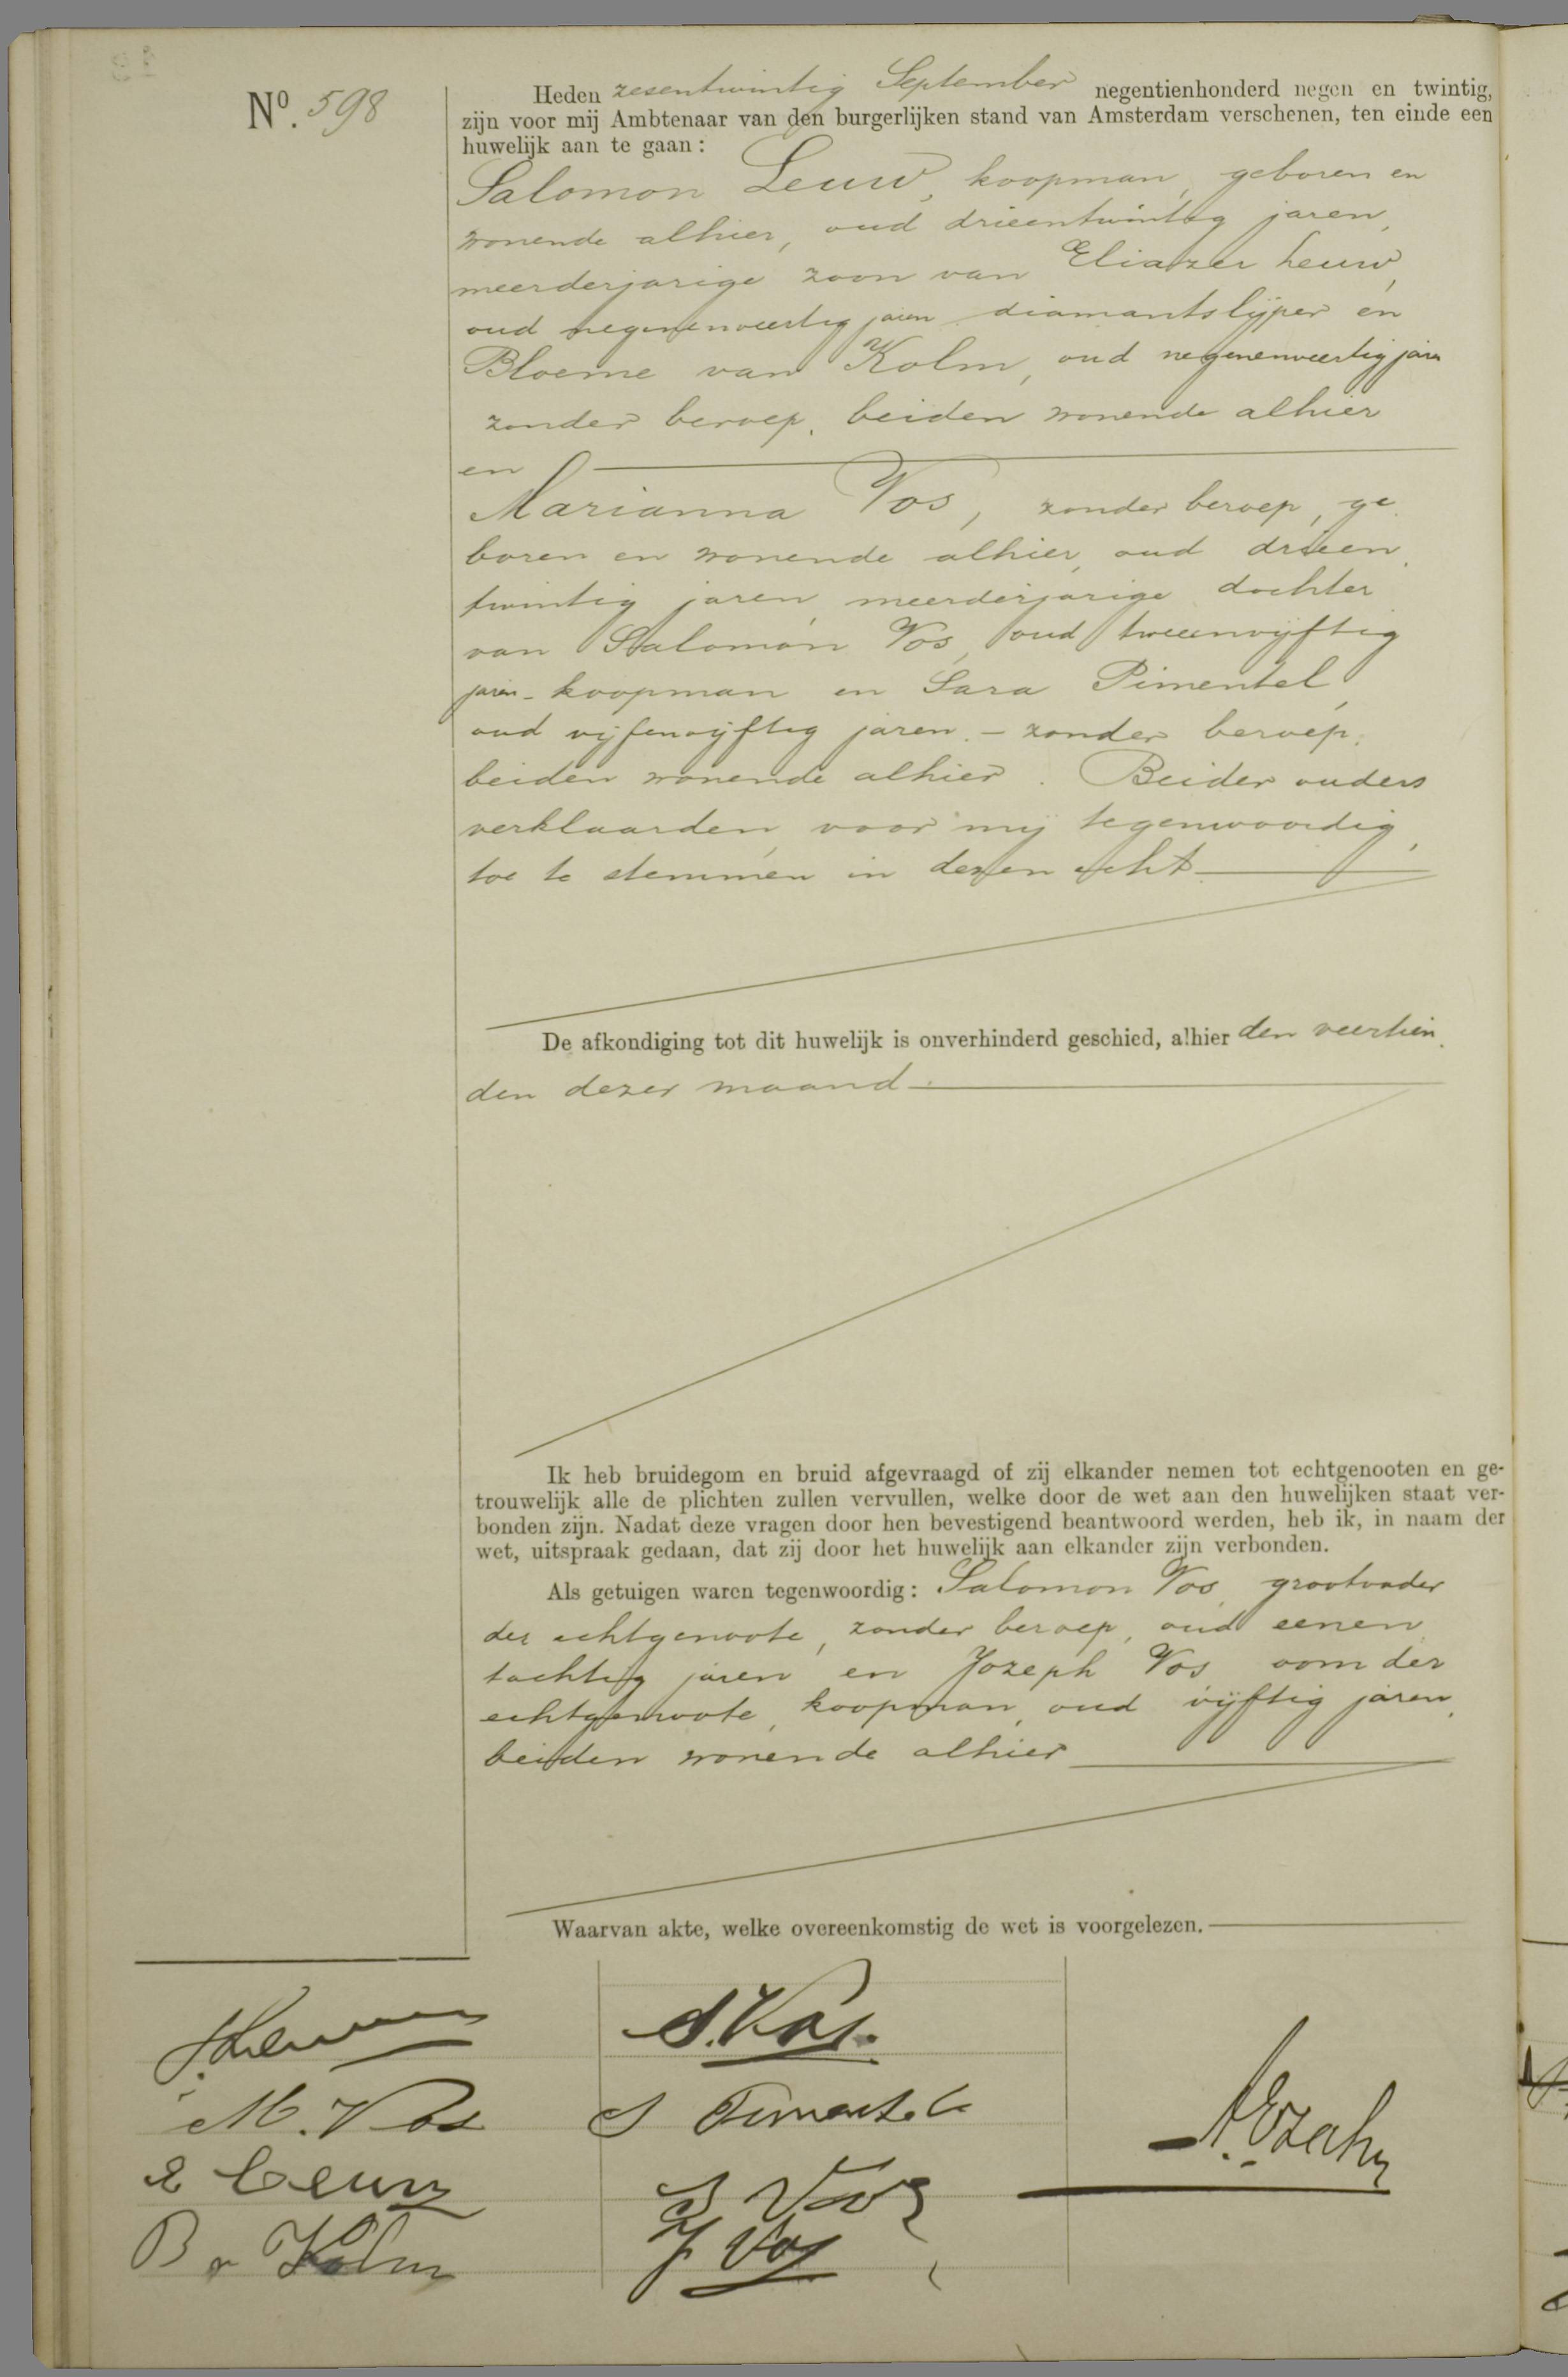 No. 598
Heden zesentwintig September negentienhonderd negen en twintig,
zijn voor mij Ambtenaar van den burgerlijken stand van Amsterdam verschenen, ten einde een
huwelijk aan te gaan:
Salomon Leuw, koopman, geboren en
wonende alhier, oud drieentwintig jaren,
meerderjarige zoon van Eliazer Leuw,
oud negenenveertig jaren diamantslijper en
Bloeme van Kolm, oud negenenveertig jaren
zonder beroep, beiden wonende alhier
en
Marianna Vos, zonder beroep, ge
boren en wonende alhier, oud drieen
twintig jaren, meerderjarige dochter
van Salomon Vos, oud tweeenvijftig
jaren - koopman en Sara Pimentel,
oud vijfenvijftig jaren. - zonder beroep.
beiden wonende alhier. Beider ouders
verklaarden, voor mij tegenwoordig,
toe te stemmen in dezen echt
De afkondiging tot dit huwelijk is onverhinderd geschied, alhier den veertien
den dezer maand
Ik heb bruidegom en bruid afgevraagd of zij elkander nemen tot echtgenooten en ge-
trouwelijk alle de plichten zullen vervullen, welke door de wet aan den huwelijken staat ver-
bonden zijn. Nadat deze vragen door hen bevestigend beantwoord werden, heb ik, in naam der
wet, uitspraak gedaan, dat zij door het huwelijk aan elkander zijn verbonden.
Als getuigen waren tegenwoordig: Salomon Vos, grootvader
der echtgenoote, zonder beroep, oud eenen
tachtig jaren en Jozeph Vos oom der
echtgenoote, koopman, oud vijftig jaren,
beiden wonende alhier
Waarvan akte, welke overeenkomstig de wet is voorgelezen.
M. Vos
E Leuw
B v Kolm
S. Vos.
S Pimentel
S Vos
J Vos